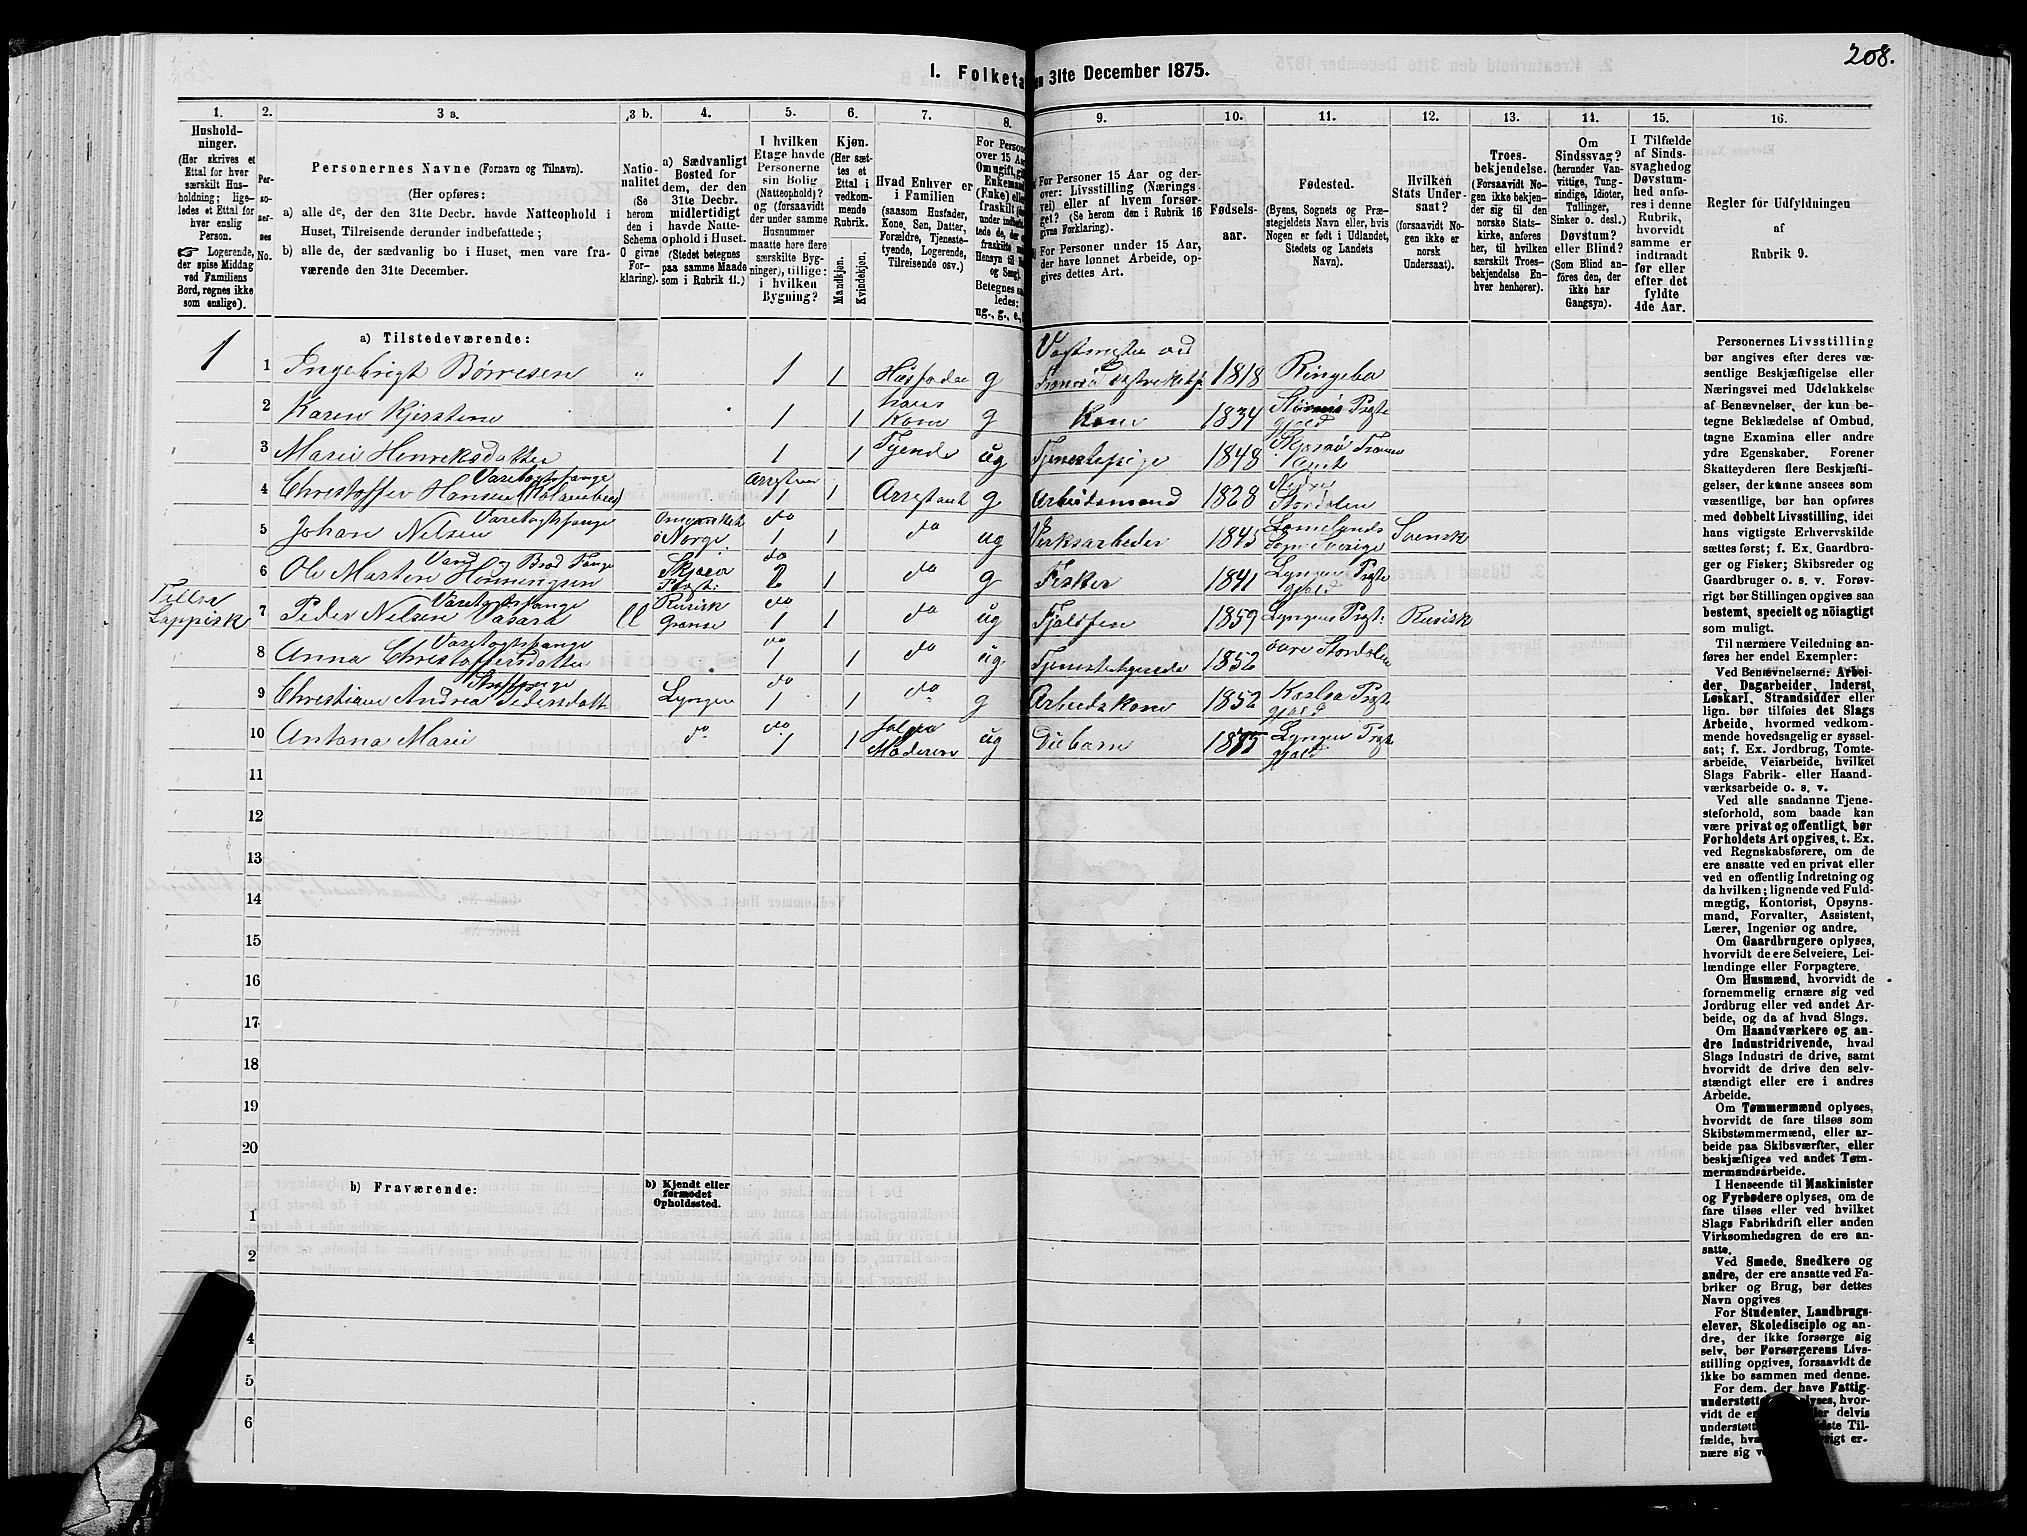 208.
1. Folketa
n 31te December 1875.
1.
2.
3 a.
3 b.
4.
5.
6.
7.
8.
9.
10.
11.
12.
13.
14.
15.
16.
Hushold-
ninger.
(Her skrives et
Ettal for hver
særskilt Hus-
holdning; lige-
ledes et Ettal for
hver enslig
Person.
Logerende,
der spise Middag
ved Familiens
Bord, regnes ikke
som enslige).
Per-
so-
ner-
nes
No.
Personernes Navne (Fornavn og Tilnavn).
(Her opføres:
a) alle de, der den 31te Decbr. havde Natteophold i
Huset, Tilreisende derunder indbefattede;
b) alle de, der sædvanlig bo i Huset, men vare fra-
værende den 31te December.
Natio-
nalitet
(Se
herom
den i
Schema
O givne
For-
klaring).
a) Sædvanligt
Bosted for
dem, der den
31te Decbr.
midlertidigt
havde Natte-
ophold i Huset.
(Stedet betegnes
paa samme Maade
som i Rubrik 11.)
I hvilken
Etage havde
Personerne
sin Bolig
(Natteophold)?
og (forsaavidt
der under samme
Husnummer
maatte høre flere
særskilte Byg-
ninger), tillige:
i hvilken
Bygning?
Kjøn.
(Her sæt-
tes et
Ettal i
vedkom-
mende
Rubrik.
Mandkjøn.
Kvindekjøn.
Hvad Enhver er
i Familien
(saasom Husfader,
Kone, Søn, Datter,
Forældre, Tjeneste-
tyende, Logerende,
Tilreisende osv.)
For Person
over 15 Aar
Om ugift, gi
Enkemand
(Enke) elle
fraskilt
Hensyn til
og Seng).
Betegnes
ledes:
ug., g., e.,
For Personer 15 Aar og der-
over: Livsstilling (Nærings-
vei) eller af hvem forsør-
get? (Se herom den i Rubrik 16
givne Forklaring).
For Personer under 15 Aar,
der have lønnet Arbeide, op-
gives dettes Art.
Fødsels-
aar.
Fødested.
(Byens, Sognets og Præ-
stegjeldets Navn eller, hvis
Nogen er født i Udlandet,
Stedets og Landets
Navn).
Hvilken
Stats Under-
saat?
(forsaavidt No-
gen ikke er
norsk
Undersaat).
Troes-
bekjendelse.
(Forsaavidt No-
gen ikke bekjen-
der sig til den
norske Stats-
kirke, anføres
her, til hvilken
særskilt Troes-
bekjendelse En-
hver henhører).
Om
Sindssvag?
(herunder Van-
vittige, Tung-
sindige, Idioter,
Tullinger,
Sinker o. desl.)
Døvstum?
eller Blind?
(Som Blind an-
føres den, der
ikke har
Gangsyn).
I Tilfælde
af Sinds-
svaghed og
Døvstum-
hed anfø-
res i denne
Rubrik,
hvorvidt
samme er
indtraadt
før eller
efter det
fyldte
4de Aar.
Regler for Udfyldningen
af
Rubrik 9.
a) Tilstedeværende:
1
1 Ingebrigt Børresen " 1 1 Husfader g Vagtmester ved Tromsø 1818 Ringebo
2 Karen Kjerstine 1 1 hans Kone g Kone 1834 Prgstegjeld
3 Marie Henriksdatter 1 1 Tyende ug Tjenestepige 1848 Skjærvø Tromsø Amt
4 Christoffer Hansen Varetægtsfange Arresten 1 1 Arrestant g Arbeidsmand 1828 Nedre Stordalen
5 Johan Nilsen Varetægtsfange i Norge do 1 1 do ug Verksarbeider 1845 Sverige Svensk
6 Ole Martin Henningsen Vand og Brød Fange Skjærvø Prgst: do 2 1 do g Fisker 1841 Lyngen Prgstegjeld
Tillse
Lappisk
7 Peder Nilsen Vasara Varetægtsfange ll Rusisk Grænse do 1 1 do ug Fjeldfin 1859 Lyngens Prgst: Rusisk
8 Anna Christoffersdatter Varetægtsfange do 1 1 do ug Tjenestetyende 1852 øvre Stordalen
9 Christiane Andrea Pedersdatt Straffange Lyngen do 1 1 do g Arbeidskone 1852 Prgstegjeld
10 Antona Marie do do 1 1 følger Moderen ug Diebarn 1875 Lyngen Prgstegjeld
11
12
13
14
15
16
17
18
19
20
b) Fraværende:
b) Kjendt eller
formodet
Opholdssted.
1
2
4
5
6
Personernes Livsstilling
bør angives efter deres væ-
sentlige Beskjæftigelse eller
Næringsvei med Udelukkelse
af Benævnelser, der kun be-
tegne Beklædelse af Ombud,
tagne Examina eller andre
ydre Egenskaber. Forener
Skatteyderen flere Beskjæfti-
gelser, der kunne ansees som
væsentlige, bør han opføres
med dobbelt Livsstilling, idet
hans vigtigste Erhvervskilde
sættes først; f. Ex. Gaardbru-
ger og Fisker; Skibsreder og
Gaardbruger o. s. v. Forøv-
rigt bør Stillingen opgives saa
bestemt, specielt og nöiagtigt
som muligt.
Til nærmere Veiledning an-
føres her endel Exempler:
Ved Benævnelserne: Arbei-
der, Dagarbeider, Inderst,
Løskarl, Strandsidder eller
lign. bør tilføies det Slags
Arbeide, hvormed vedkom-
mende hovedsagelig er syssel-
sat; f. Ex. Jordbrug, Tomte-
arbeide, Veiarbeide, hvilket
Slags Fabrik- eller Haand-
værksarbeide o. s. v.
Ved alle saadanne Tjene-
steforhold, som baade kan
være privat og offentligt, bør
Forholdets Art opgives, t. Ex.
ved Regnskabsførere, om de
ere ansatte ved en privat eller
ved en offentlig Indretning og
da hvilken; lignende ved Fuld-
mægtig, Kontorist, Opsyns-
mand, Forvalter, Assistent,
Lærer, Ingeniør og andre.
Om Gaardbrugere oplyses,
hvorvidt de ere Selveiere, Lei-
lændinge eller Forpagtere.
Om Husmænd, hvorvidt de
fornemmelig ernære sig ved
Jordbrug eller ved andet Ar-
beide, og da af hvad Slags.
Om Haandværkere og an-
dre Industridrivende, hvad
Slags Industri de drive, samt
hvorvidt de drive den selv-
stændigt eller ere i andres
Arbeide.
Om Tømmermænd oplyses,
hvorvidt de fare tilsøs som
Skibstømmermænd, eller ar-
beide paa Skibsværfter, eller
beskjæftiges ved andet Tøm-
mermandsarbeide.
I Henseende til Maskinister
og Fyrbødere oplyses, om de
fare tilsøs eller ved hvilket
Slags Fabrikdrift eller anden
Virksomhedsgren de ere an-
satte.
Ved Smede, Snedkere og
andre, der ere ansatte ved Fa-
briker og Brug, bør dettes
Navn opgives
For Studenter, Landbrugs-
elever, Skoledisciple og an-
dre, der ikke forsørge sig
selv, bør Forsørgerens Livs-
stilling opgives, forsaavidt de
ikke bo sammen med denne.
For dem, der have Fattig-